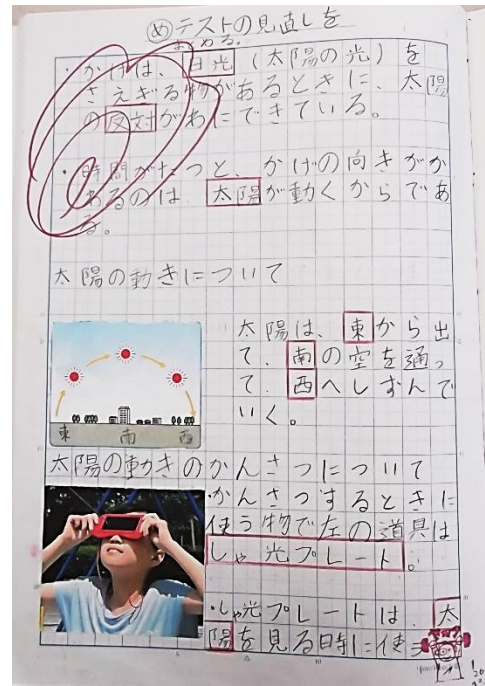 めテストの見直しを
おわる.
・かげは、日光(太陽の光)を
さえぎる物があるときに、太陽
の反対がわにできている。
・時間がたつと、かげの向きがか
わるのは、太陽が動くからであ
る。
太陽の動きについて
太陽は、東から出
て、南の空を通っ
て、西へしずんで
いく。
東 南 西
太陽の動きのかんさつについて
・かんさつするときに
使う物で左の道具は
しゃ光プレート。
・しゃ光プレートは、太
陽を見る時に使う